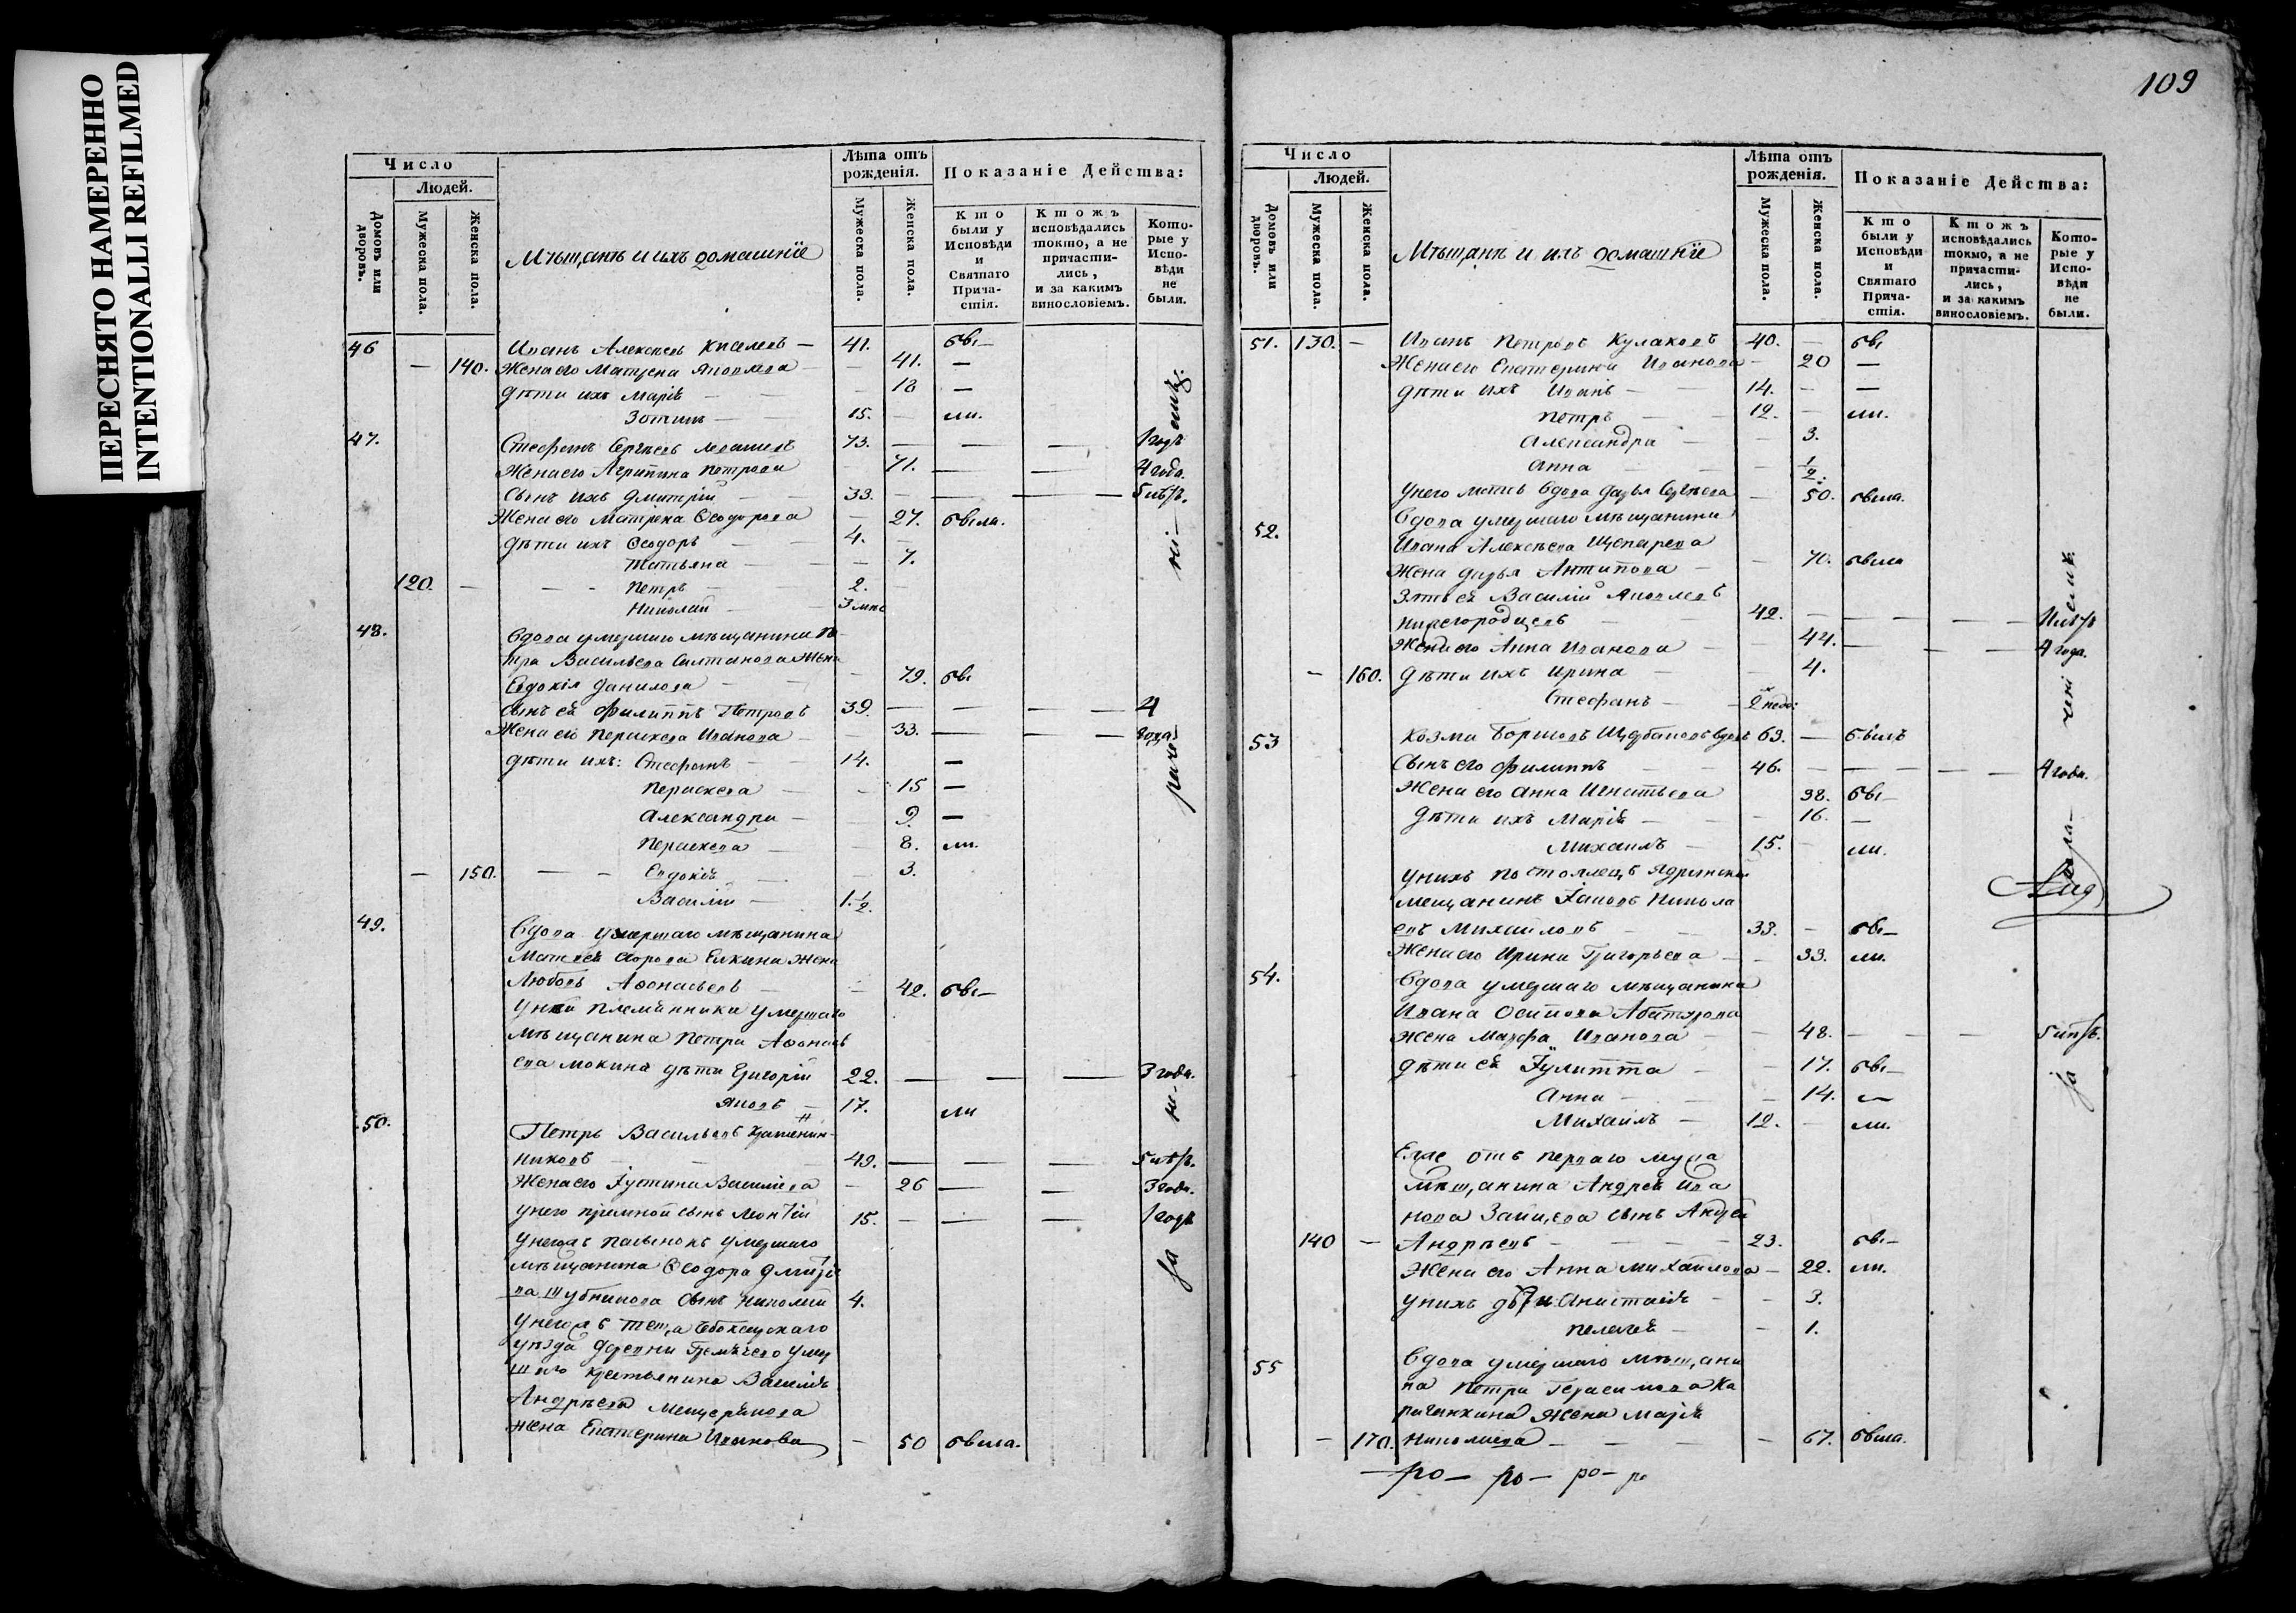 ПЕРЕСНЯТО НАМЕРЕННО
INTENTIONALLI REFILMED
109
Число
Людей.
Домовъ или дворовъ.
Мужеска пола.
Женска пола.
Мѣщанъ и ихъ домашніе
Лѣта отъ рожденія.
Мужеска пола.
Женска пола.
Показаніе Действа:
Кто были у Исповѣди и Святаго Прича-стія.
Ктожъ исповѣдались токмо, а не причасти-лись, и за какимъ винословіемъ.
Кото-рые у Испо-вѣди не были.
46 Иванъ Алексѣевъ Киселевъ — 41. бы—
— 140. Жена его Матрена Яковлева — 41. —
дѣти ихъ Марія — 18 —
Зотикъ — 15. — ли.
47. Стефанъ Сергѣевъ 73. — — — 1 годъ
Жена его Агрипина Петрова — 71. — — 4 года.
Сынъ ихъ Дмитрій — 33. — — — 5 лѣтъ.
Жена его Матрена Ѳеодорова — 27. была.
дѣти ихъ Ѳеодоръ — 4. —
Татьяна — — 7.
120. — — Петръ — 2.
Николай — 3 мѣс
48. Вдова умершаго мѣщанина Пе-
тра Васильева Салтанова жена
Евдокія Данилова — — 79. бы
Сынъ ея Филиппъ Петровъ 39. — — — 4
Жена его Параскева Иванова — 33. — — года
дѣти ихъ: Стефанъ — 14. —
Параскева — — 15 —
Александра — — 9. —
Параскева — — 8. ли.
— 150. — — Евдокія — — 3.
Василій — 1.1/2.
49. Вдова умершаго мѣщанина
Матвея Елкина жена
Любовь Аѳонасьева — — 42. бы—
у ней племянники умершаго
мѣщанина Петра Аѳонась
ева Мокина дѣти Григорій 22. — — — 3 года.
Яковъ — 17. ли
50. Петръ Васильевъ
никовъ — 49. — — — 5 лѣтъ.
Жена его Іустина Василіева — 26 — — 3 года.
у него приемной сынъ Леонтій 15. — — — 1 годъ
у него жъ пасынокъ умершаго
мѣщанина Ѳеодора Дмитріе
ва Шубникова сынъ Николай 4.
у него жъ теща Чебоксарскаго
уѣзда деревни умер
шаго крестьянина Василія
Андрѣева Мещерякова
жена Екатерина Иванова — 50 была.
Число
Людей.
Домовъ или дворовъ.
Мужеска пола.
Женска пола.
Мѣщанъ и ихъ домашніе
Лѣта отъ рожденія.
Мужеска пола.
Женска пола.
Показаніе Действа:
Кто были у Исповѣди и Святаго Прича-стія.
Ктожъ исповѣдались токмо, а не причасти-лись, и за какимъ винословіемъ.
Кото-рые у Испо-вѣди не были.
51. 130. — Иванъ Петровъ Кулаковъ 40. — бы
Жена его Екатерина Иванова — 20 —
дѣти ихъ Иванъ — 14. — —
Петръ — 12. — ли.
Александра — — 3.
Анна — — 1/2.
у него мать вдова Дарья Сергѣева — 50. была.
52. Вдова умершаго мѣщанина
Ивана Алексѣева
жена Дарья Антипова — — 70. была
Зять ея Василій Яковлевъ
Нижегородцевъ — 42. — — —
Жена его Анна Иванова — 44. — — 4 года.
— 160. дѣти ихъ Ирина — — 4.
Стефанъ — 2 нед:
53 Козма Борисовъ вдовъ 63. — былъ
Сынъ его Филиппъ — 46. — — — 4 года.
Жена его Анна Игнатьева 38. бы—
дѣти ихъ Марія — — 16. —
Михаилъ — 15. — ли.
у нихъ постоялецъ Ядринской
мещанинъ Іаковъ Никола
евъ Михайловъ — 33. — бы—
Жена его Ирина Григорьева — 33. ли.
54. Вдова умершаго мѣщанина
Ивана Осипова Абатурова
жена Марфа Иванова — — 48. — — 5 лѣтъ.
дѣти ея Іулитта — — 17. бы—
Анна — — 14. —
Михаилъ — 12. — ли.
Еще отъ перваго мужа
мѣщанина Андрея Ива
нова Зайцева сынъ Андрей
140 — Андрѣевъ — 23. бы—
Жена его Анна Михайлова — 22. ли.
у нихъ дѣти: Анастасія — — 3.
Пелагея — — 1.
55 Вдова умершаго мѣщани
на Петра Герасимова Ка
жена Марія
— 170. Николаева — — 67. была.
— ро — ро — ро — ро